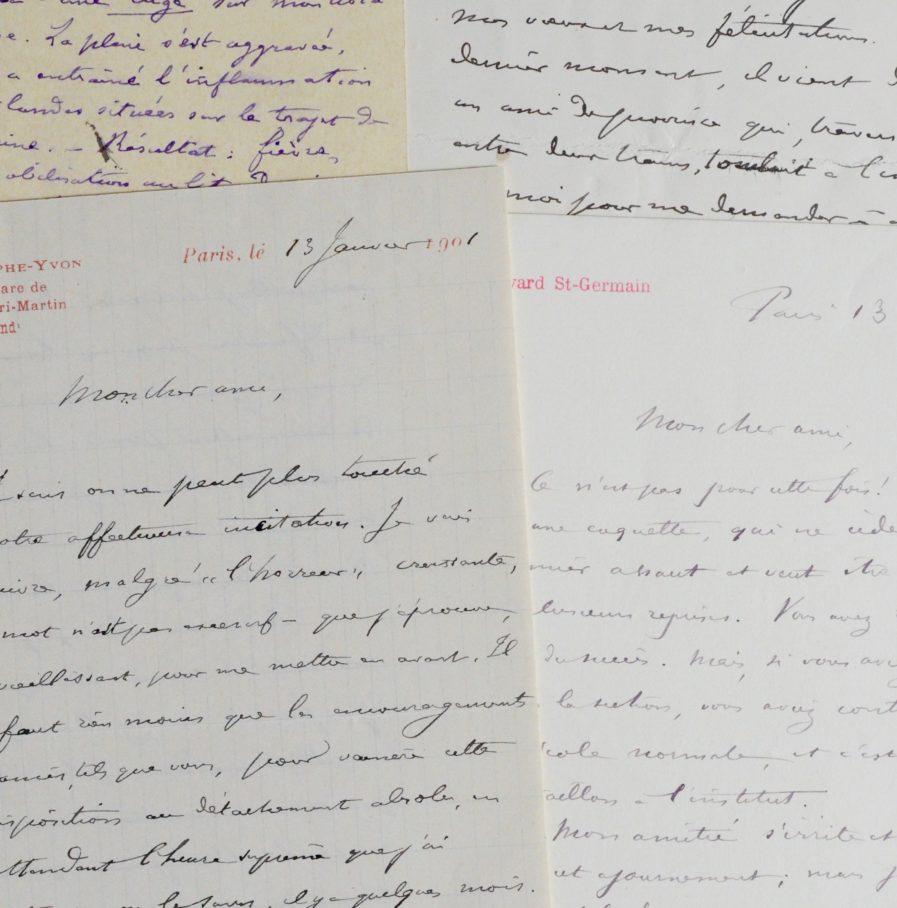 une sur mon
e. La plaie s'est aggravée,
a entraîné l'inflammation
landes situées sur le trajet de
ine. – Résultat : fièvre,
au lit
mes vœux et mes félicitations.
dernier moment, il vient d
un ami de province qui, traver
entre deux trains, tombait à l'i
moi pour me demander à
PHE-YVON
are de
ri-Martin
end
Paris, le 13 Janvier 1901
Mon cher ami,
suis on ne peut plus touché
otre affectueuse invitation. Je vais
ivre, malgré « l'horreur » croissante,
mot n'est pas excessif – que j'éprouve,
vieillissant, pour me mettre en avant. Il
faut rien moins que les encouragements
amis, tels que vous, pour vaincre cette
isposition au détachement absolu, en
ttendant l'heure suprême que j'ai
il y a quelques mois.
vard St-Germain
Paris 13
Mon cher ami,
Ce n'est pas pour cette fois !
une coquette, qui ne cède
mier assaut et veut être
lusieurs reprises. Vous avez
du succès. Mais, si vous avi
la section, vous aviez cont
cole normale, et c'est
allons à l'institut.
Mon amitié s'irrite et
cet ajournement ; mais j